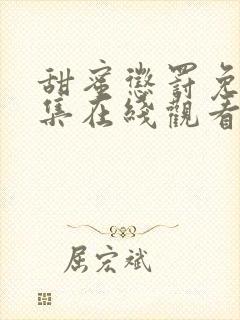 甜蜜懲罰免
集在綫觀看
屈宏斌